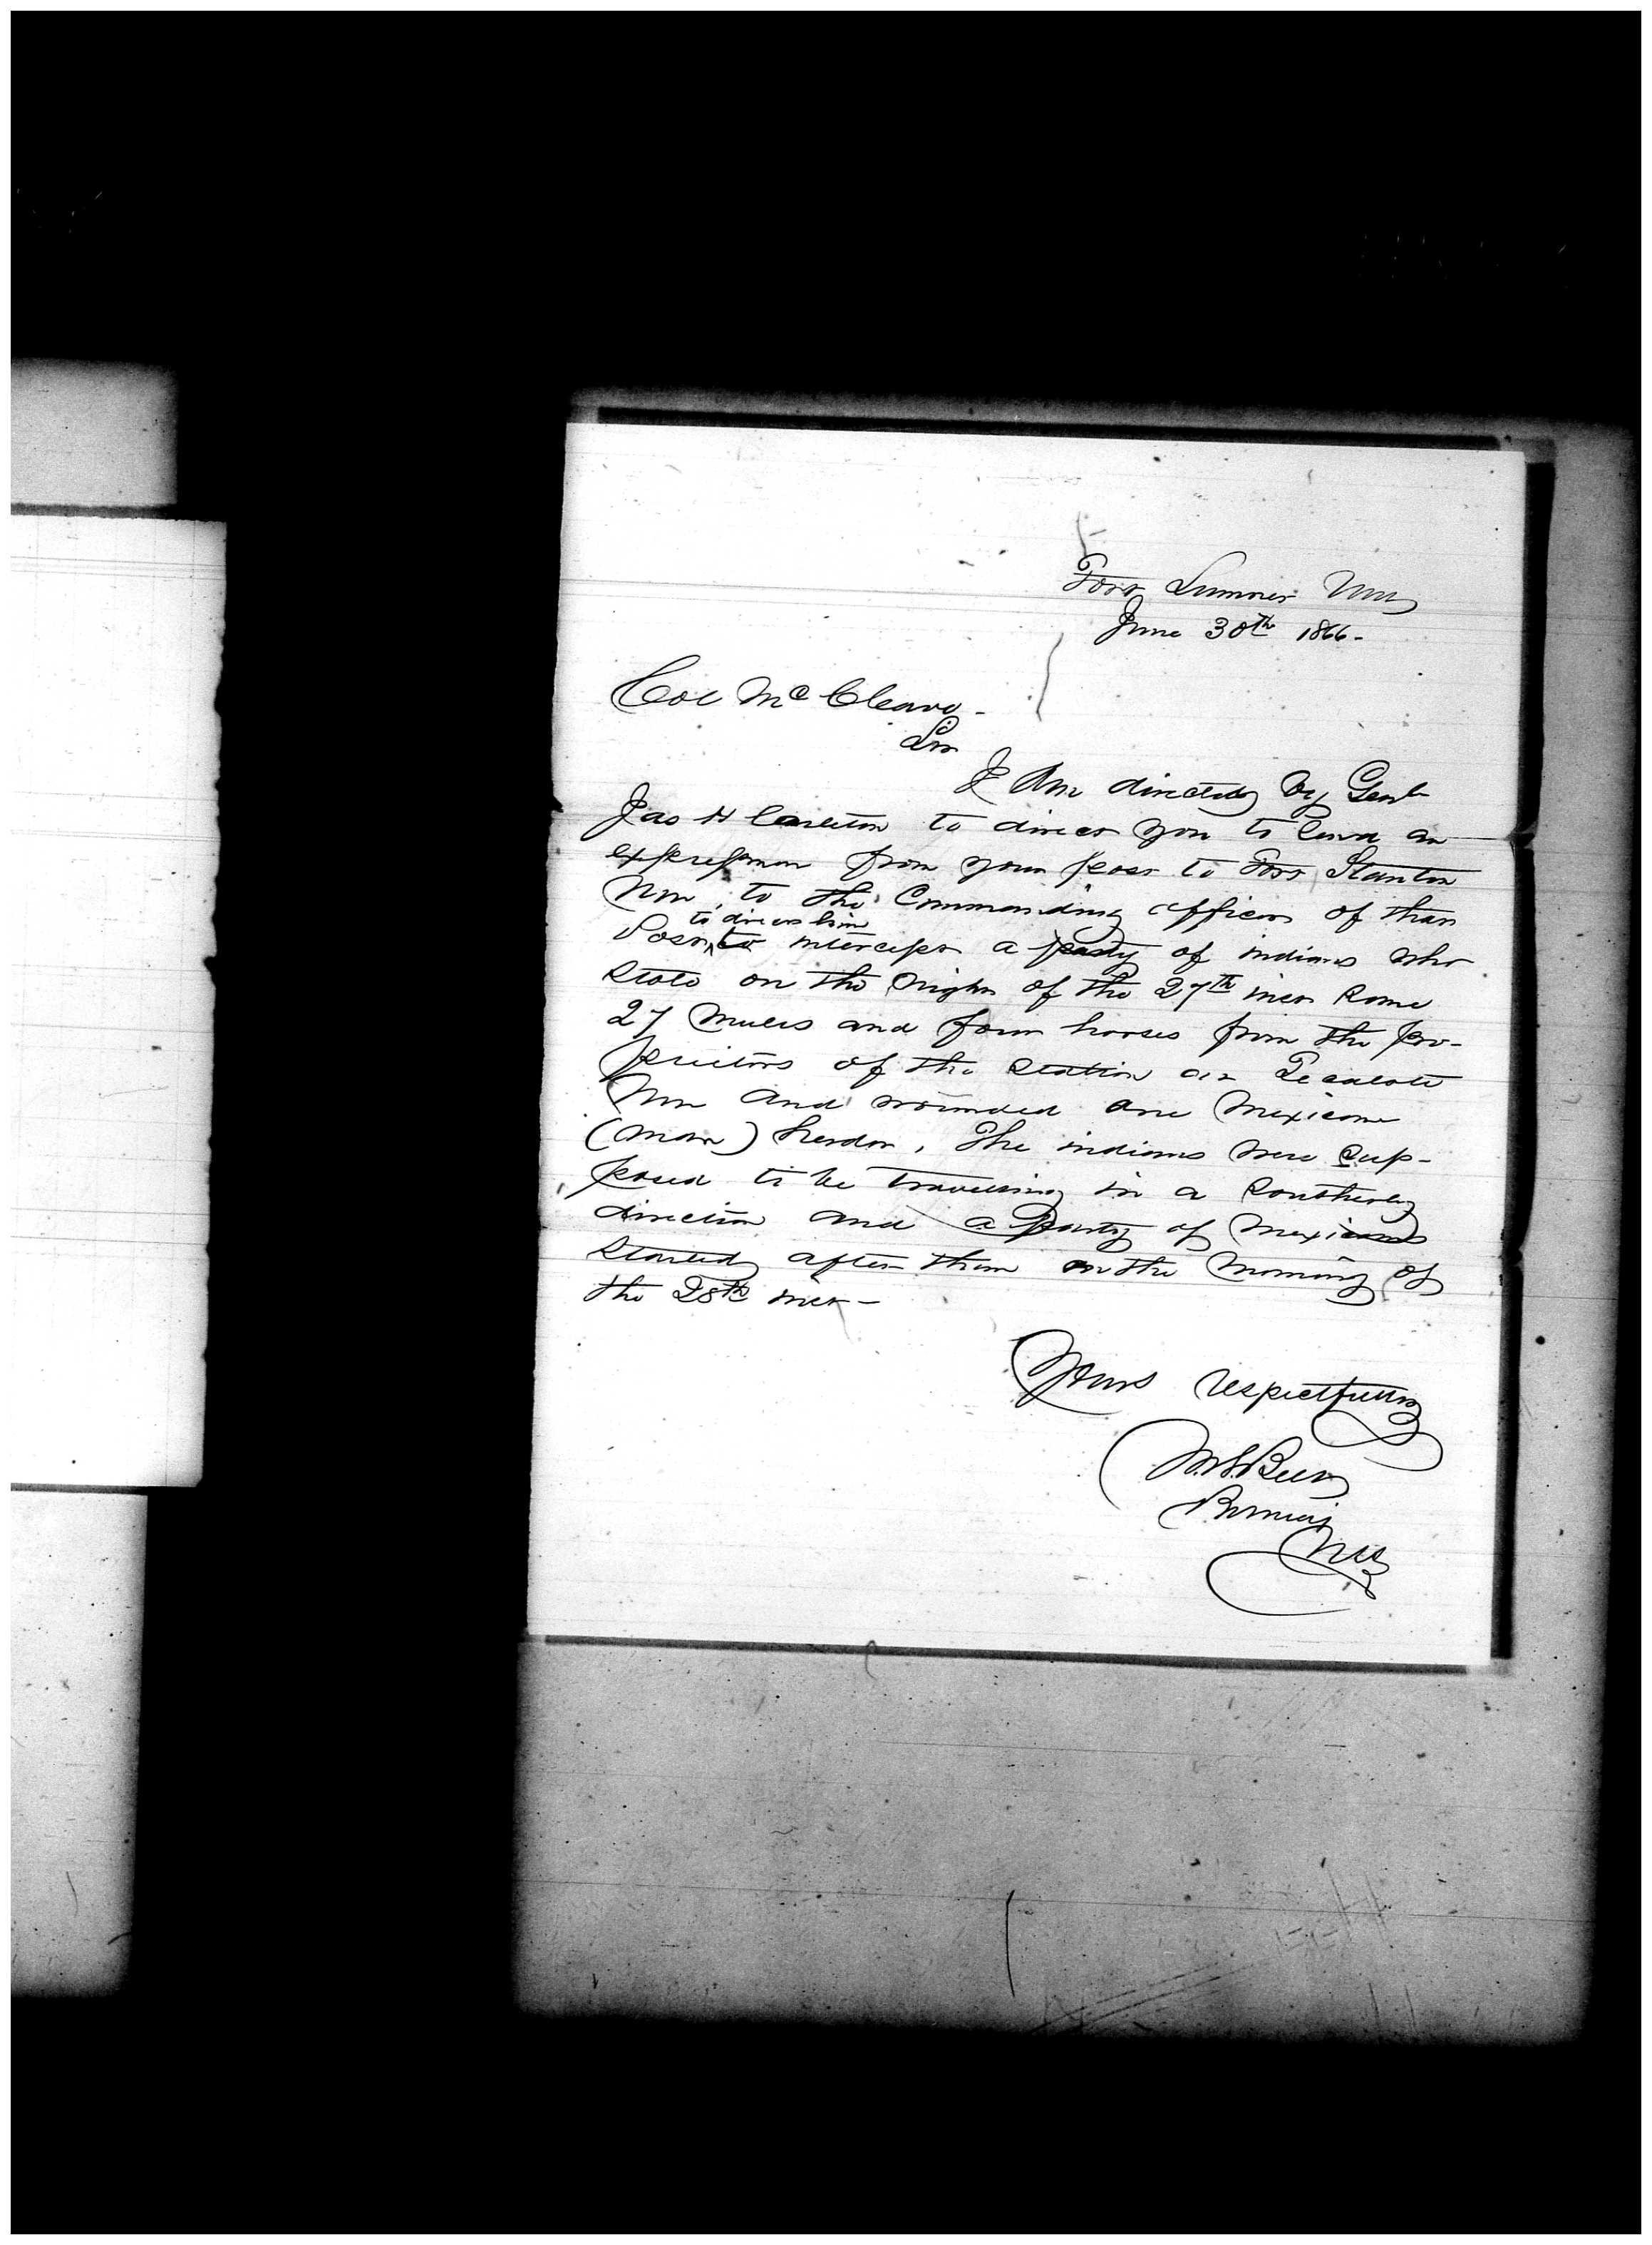 Fort Sumner NM
June 30th 1866 -
Col Mc Cleave -
Sir
I Am directed by Genl
Jas H Carleton to direct you to send an
expressman from your post to Fort Stanton
NM, to the Commanding officer of that
to direct him
Post, to intercept a party of indians who
stole on the night of the 27th inst some
27 mules and four horses from the pro-
prietors of the station at Tecalote
NM and wounded one Mexican
(man) herder, The indians were sup-
posed to be travelling in a southerly
direction and a party of Mexicans
started after them on the morning of
the 28th inst -
Yours respectfully
NM